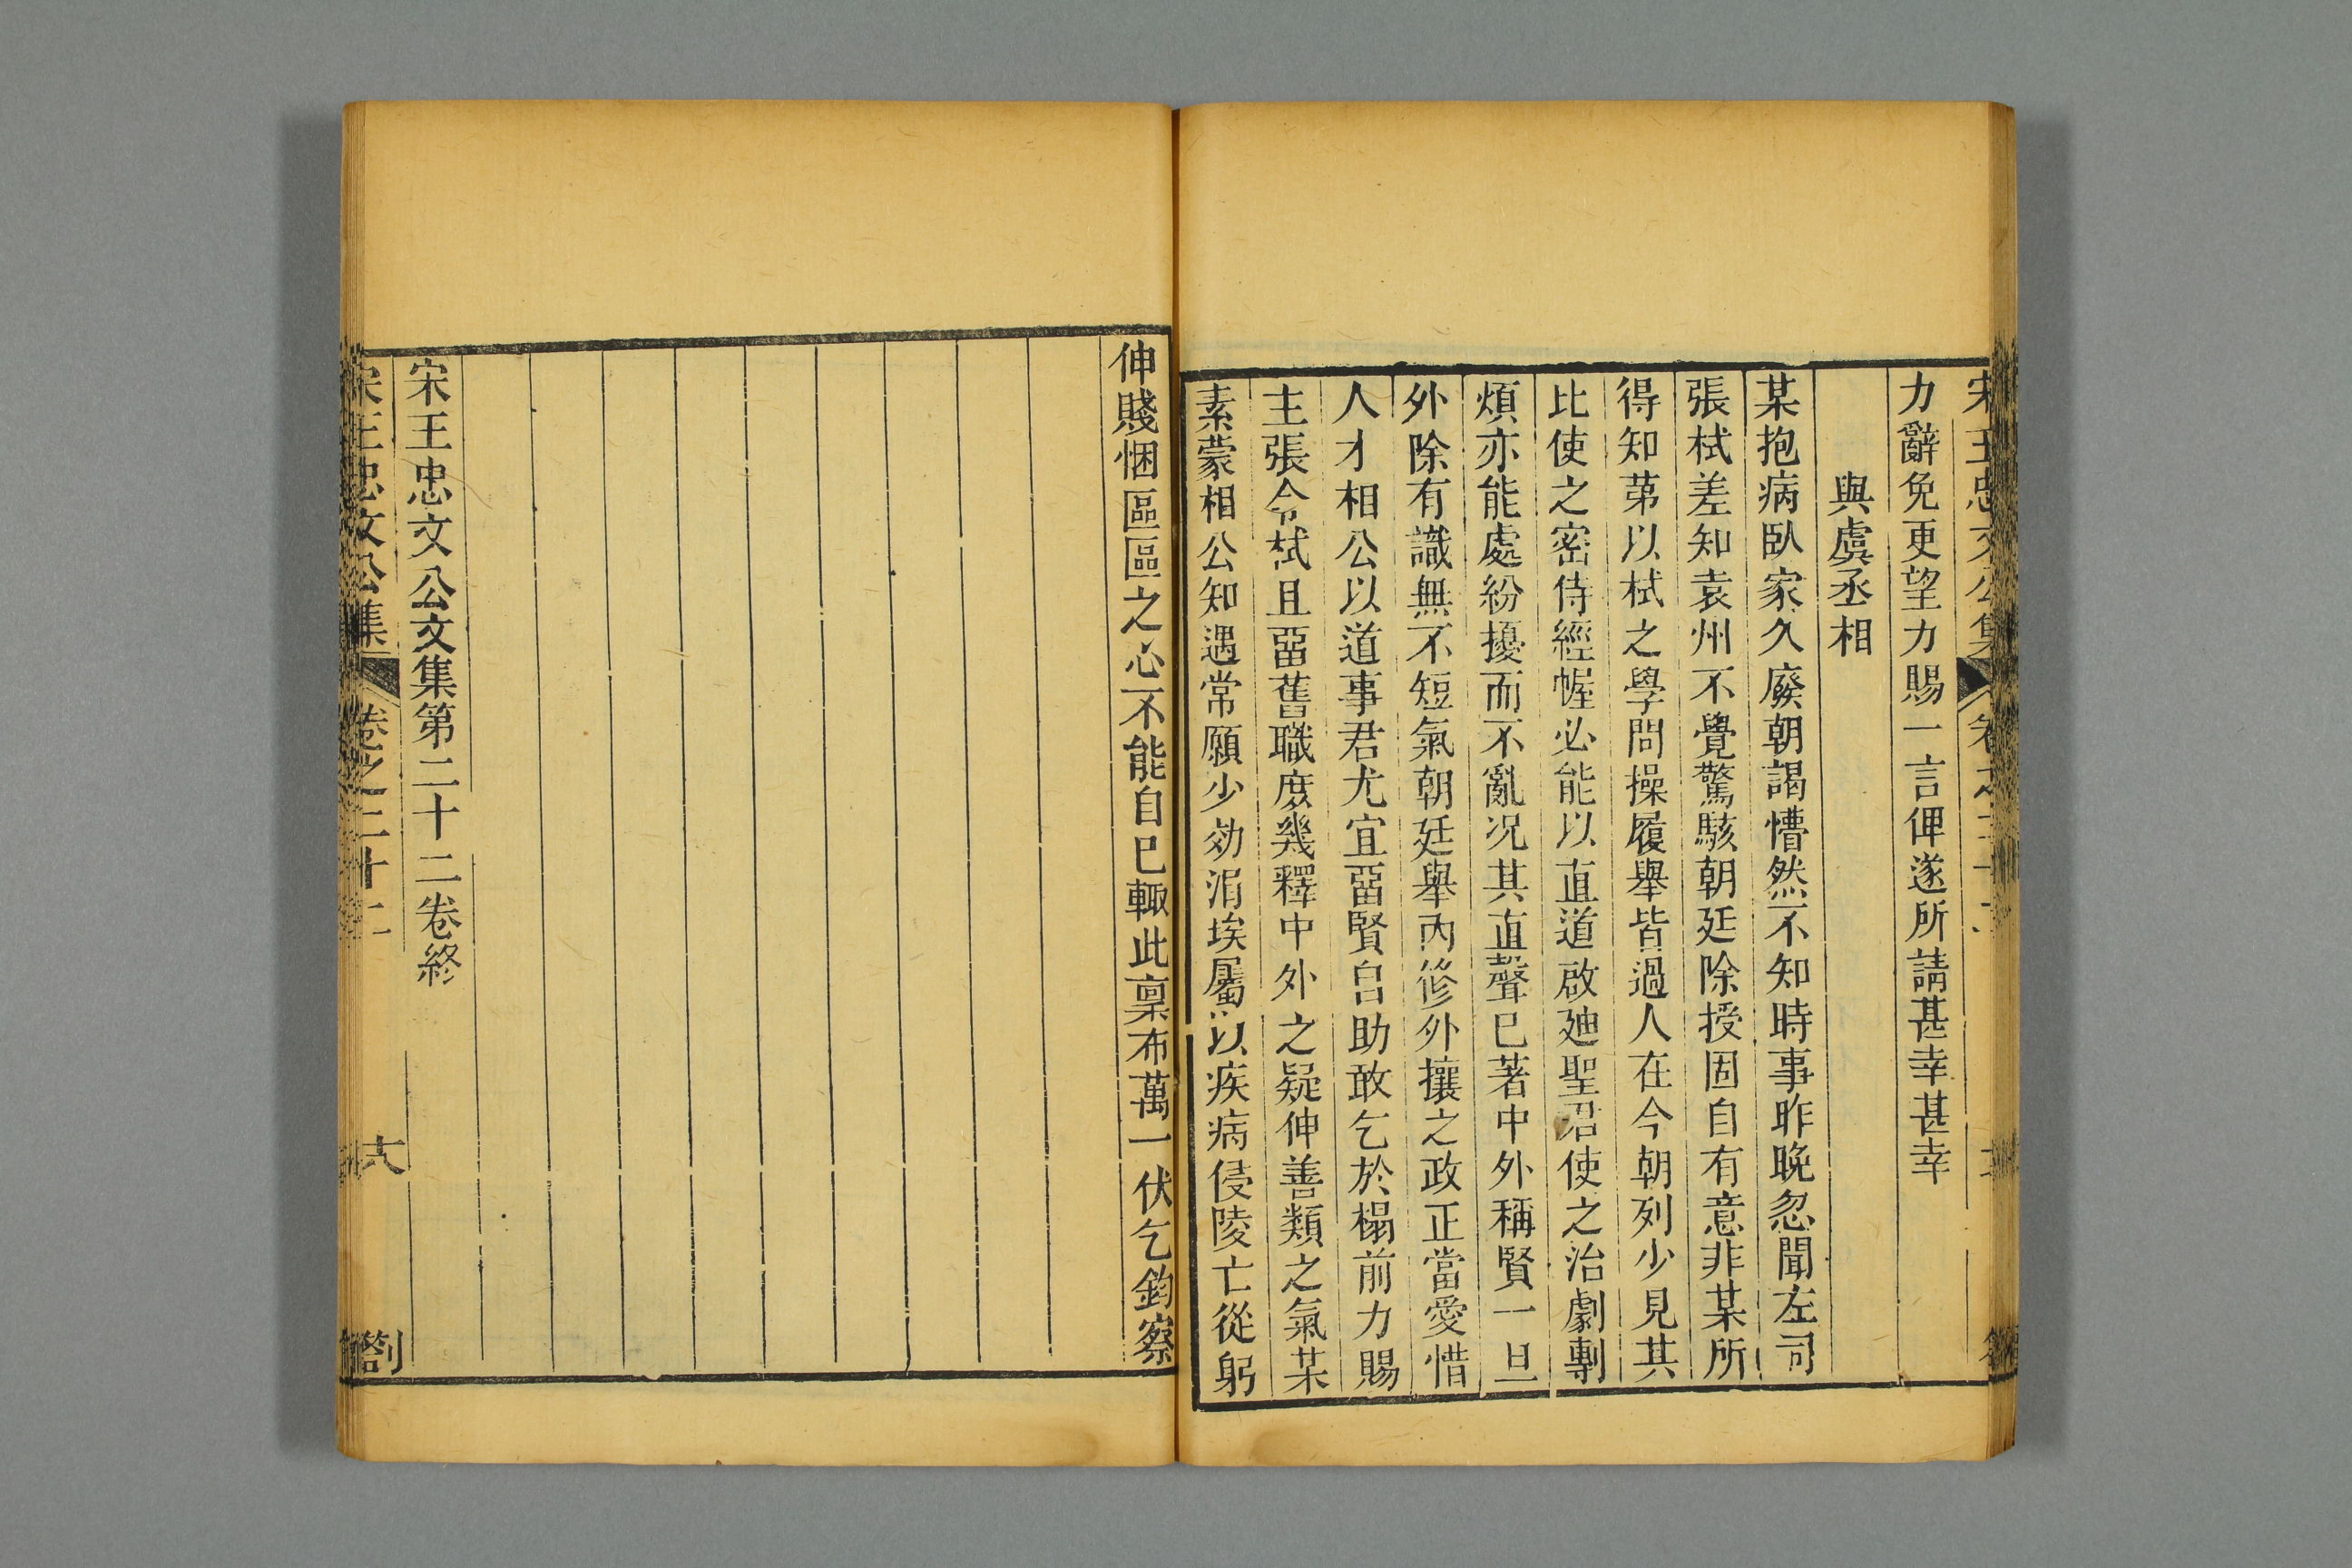 宋王忠文公集
卷之二十二
力辭免更望力賜一言俾遂所請甚幸甚幸
與虞丞相
某抱病臥家久廢朝謁懵然不知時事昨晚忽聞左司
張栻差知袁州不覺驚駭朝廷除授固自有意非某所
得知苐以栻之學問操履舉皆過人在今朝列少見其
比使之密侍經幄必能以直道啟廸聖君使之治劇剸
煩亦能處紛擾而不亂况其直聲已著中外稱賢一旦
外除有識無不短氣朝廷舉內修外攘之政正當愛惜
人才相公以道事君尤宜畱賢㠯助敢乞於榻前力賜
主張令栻且畱舊職庻幾釋中外之疑伸善類之氣某
素蒙相公知遇常願少効涓埃屬以疾病侵陵亡從躬
伸賤悃區區之心不能自已輙此稟布萬一伏乞鈞察
宋王忠文公文集第二十二卷終
宋王忠文公集
卷之二十二
十八
劄